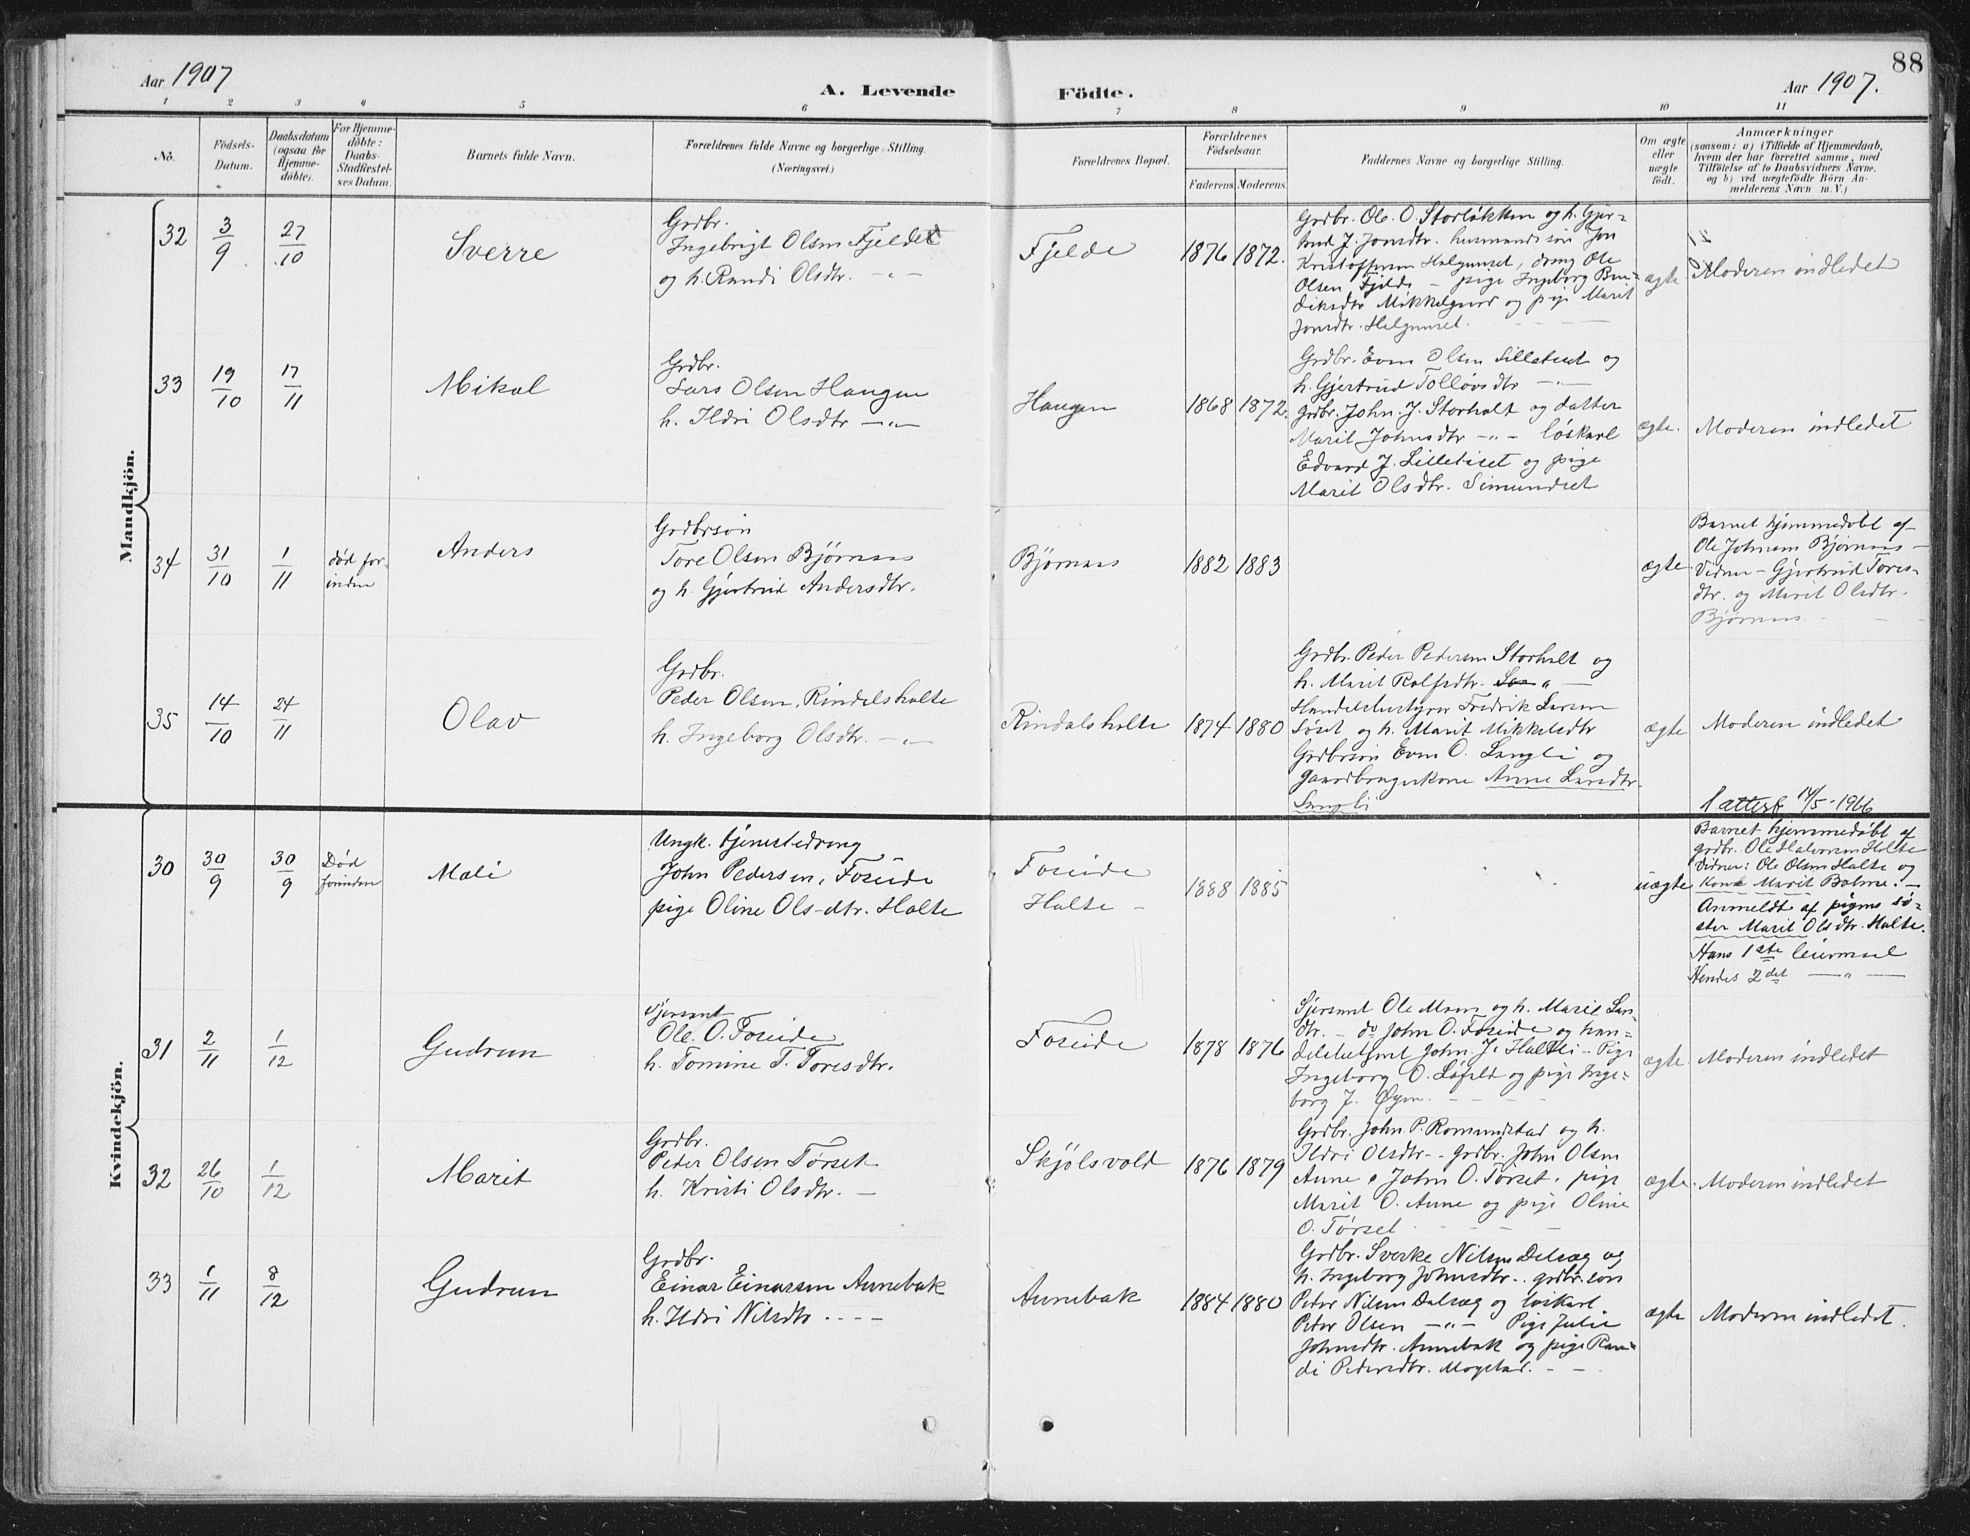 88
Aar 1907
A. Levende
Födte.
Aar 1907.
1 2 3 4 5 6 7 8 9 10 11
No.
Födsels-
Datum.
Daabsdatum
(ogsaa for
Hjemme-
döbte).
For Hjemme-
döbte:
Daabs-
Stadfæstel-
ses Datum.
Barnets fulde Navn.
Forældrenes fulde Navne og borgerlige Stilling.
(Næringsvei.)
Forældrenes Bopæl.
Forældrenes
Födselsaar.
Faderens Moderens
Faddernes Navne og borgerlige Stilling.
Om ægte
eller
uægte
födt.
Anmærkninger
(saasom: a) i Tilfælde af Hjemmedaab,
hvem der har forrettet samme, med
Tilföielse af to Daabsvidners Navne.
og b) ved uægtefödte Börn An-
melderens Navn m. V.)
Mandkjön.
32
3/9
27/10
Sverre
Grdbr.
Ingebrigt Olsen Fjelde
og h. Randi Olsdtr. -"-
Fjelde
1876 1872.
Grdbr. Ole O. Storløkken og h. Gjer-
trud J. Jonsdtr. husmandssøn Jon
Kristoffersen Helgunset, dreng Ole
Olsen Fjelde - pige Ingeborg Ben-
diksdtr Mikkelgaard og pige Marit
Jonsdtr. Helgunset.
ægte
Moderen indledet
33
19/10
17/11
Mikal
Grdbr.
Lars Olsen Haugen
h. Ildri Olsdtr -"-
Haugen
1868 1872.
Grdbr. Even Olsen Lilletiset og
h. Gjertrud Tolløvsdtr -"-
grdbr. John J. Storholt og datter
Marit Johnsdtr -"- løskarl
Edvard J. Lilletiset og pige
Marit Olsdtr. Simundset
ægte.
Moderen indledet
34
31/10
1/11
død for-
inden
Anders
Grdbrsøn
Tore Olsen Bjørnaas
og h. Gjertrud Andersdtr.
Bjørnaas
1882 1883
ægte
Barnet hjemmedøbt af
Ole Johnsen Bjørnaas -
Vidner - Gjertrud Tores-
dtr. og Marit Olsdtr.
Bjørnaas
35
14/10
24/11
Olav
Grdbr.
Peder Olsen Rindalsholte
h. Ingeborg Olsdtr. -"-
Rindalsholte
1874 1880
Grdbr. Peder Pedersen Storholt og
h. Marit Rolfsdtr. -"-
Handelsbestyrer Fredrik Larsen
Løset og h. Marit Mikkelsdtr
Grdbrsøn Even O. Langli og
gaardbrugerkone Anne Larsdtr.
Langli
ægte
Moderen indledet
1 attest 14/5-1966
Kvindekjön.
30
30/9
30/9
Død
forinden
Mali
Ungk. tjenestedreng
John Pedersen, Foseide
pige Oline Ols-dtr. Holte
Foseide
Holte -
1888 1885
uægte
Barnet hjemmedøbt af
grdbr. Ole Halvorsen Holte
Vidner: Ole Olsen Holte og
Kone Marit Bolme. -
Anmeldt af pigens sø-
ster Marit Olsdtr. Holte.
Hans 1ste leiermaal
Hendes 2det -"-
31
2/11
1/12
Gudrun
Sjersant
Ole O. Foseide
h. Tomine T. Toresdtr.
Foseide
1878 1876
Sjersant Ole Moen og h. Marit Lars-
dtr. - do John O. Foseide og han-
delsbetjent John J. Holte - Pige
Ingeborg O. Løfald og pige Inge-
borg J. Øyen.
ægte.
Moderen indledet
32
26/10
1/12
Marit
Grdbr.
Peder Olsen Tørset
h. Kristi Olsdtr. -
Skjølsvold
1876 1879
Grdbr. John P. Romundstad og h.
Ildri Olsdtr. - Grdbr. John Olsen
Aune, John O. Tørset, pige
Marit O. Aune og pige Oline
O. Tørset
ægte.
Moderen indledet
33
1/11
8/12
Gudrun
Grdbr.
Einar Einarsen Aunebak
h. Ildri Nilsdtr
Aunebak
1884 1880
Grdbr. Sverke Nilsen Dalsæg og
h. Ingeborg Johnsdtr. grdbr.søn
Peder Nilsen Dalsæg og løskarl
Peder Olsen -"- Pige Julie
Johnsdtr. Aunebak og pige Ran-
di Pedersdtr. Mogstad.
ægte
Moderen indledet.